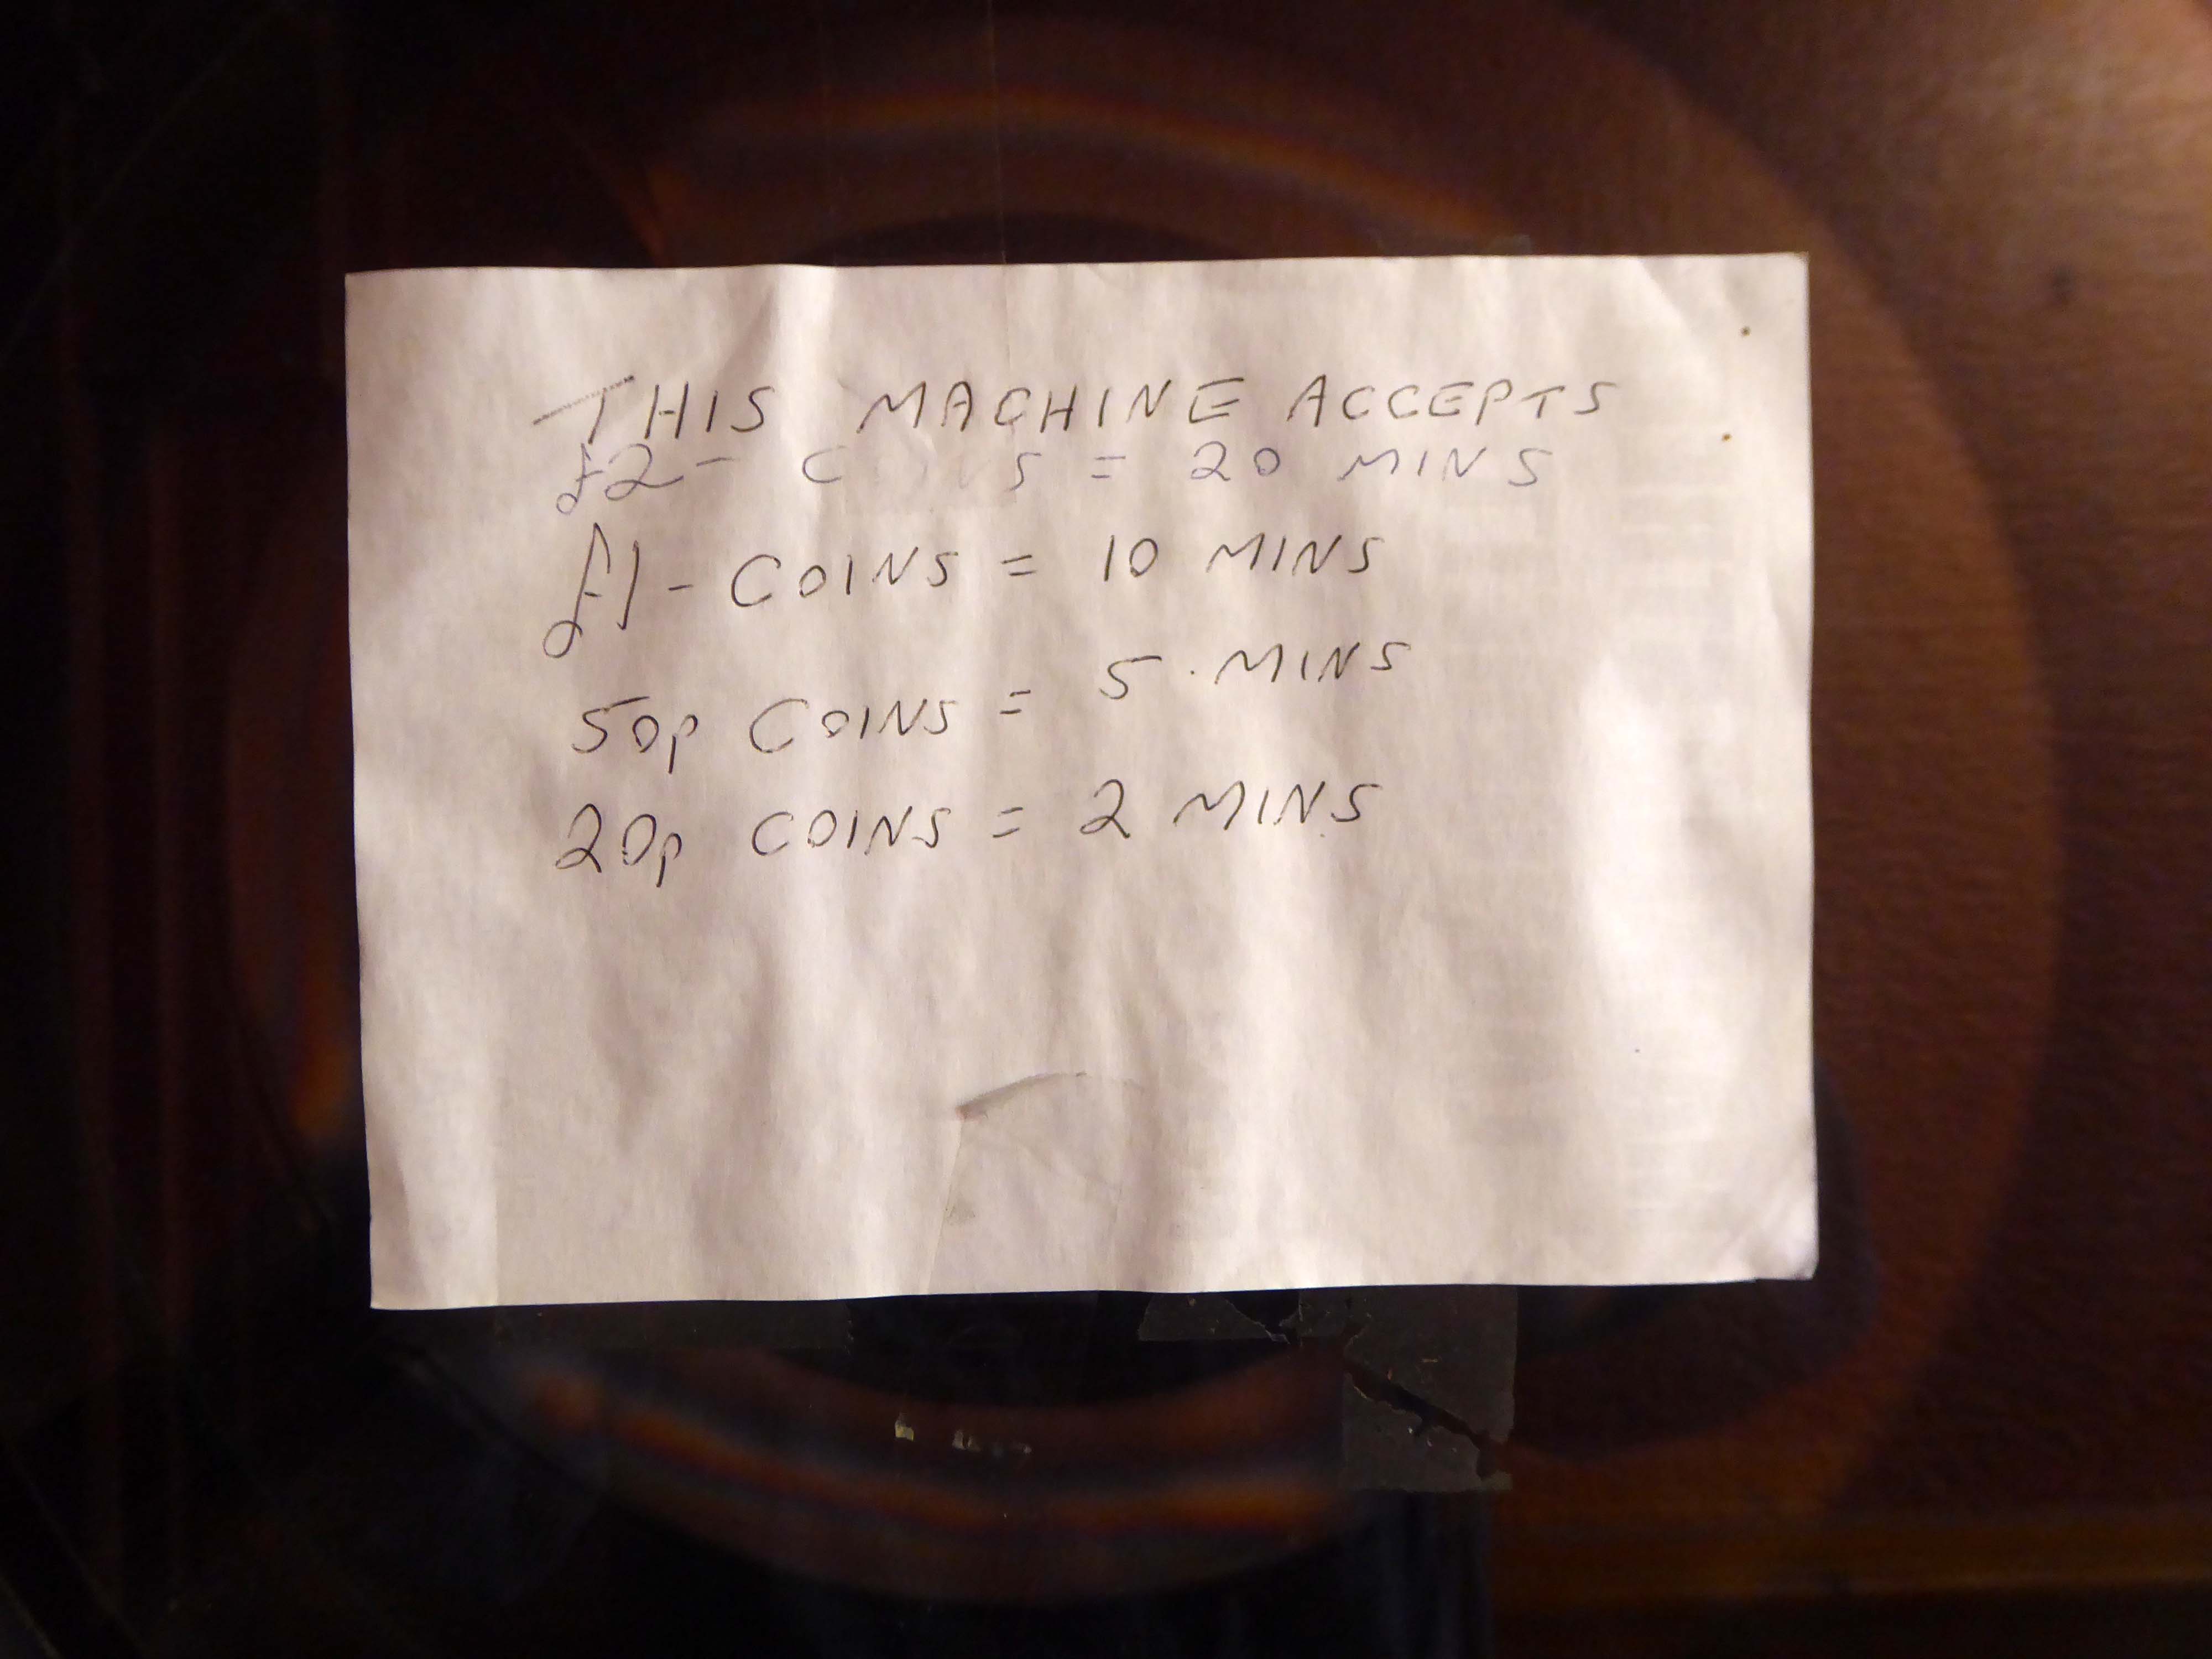 THIS MACHINE ACCEPTS
£2- COINS = 20 MINS
£1- COINS = 10 MINS
50p COINS = 5 . MINS
20p COINS = 2 MINS